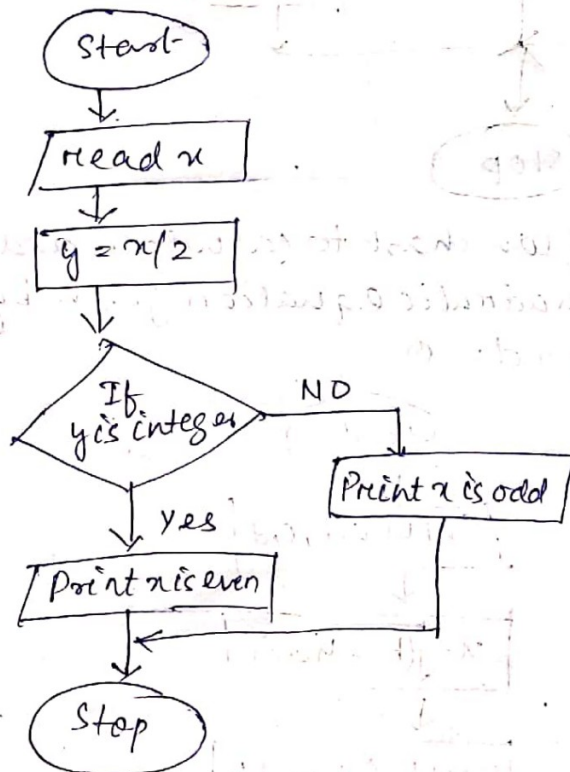 Start
read x
y = x/2
If
y is integer
NO
Print x is odd
yes
Print x is even
Stop
Stop